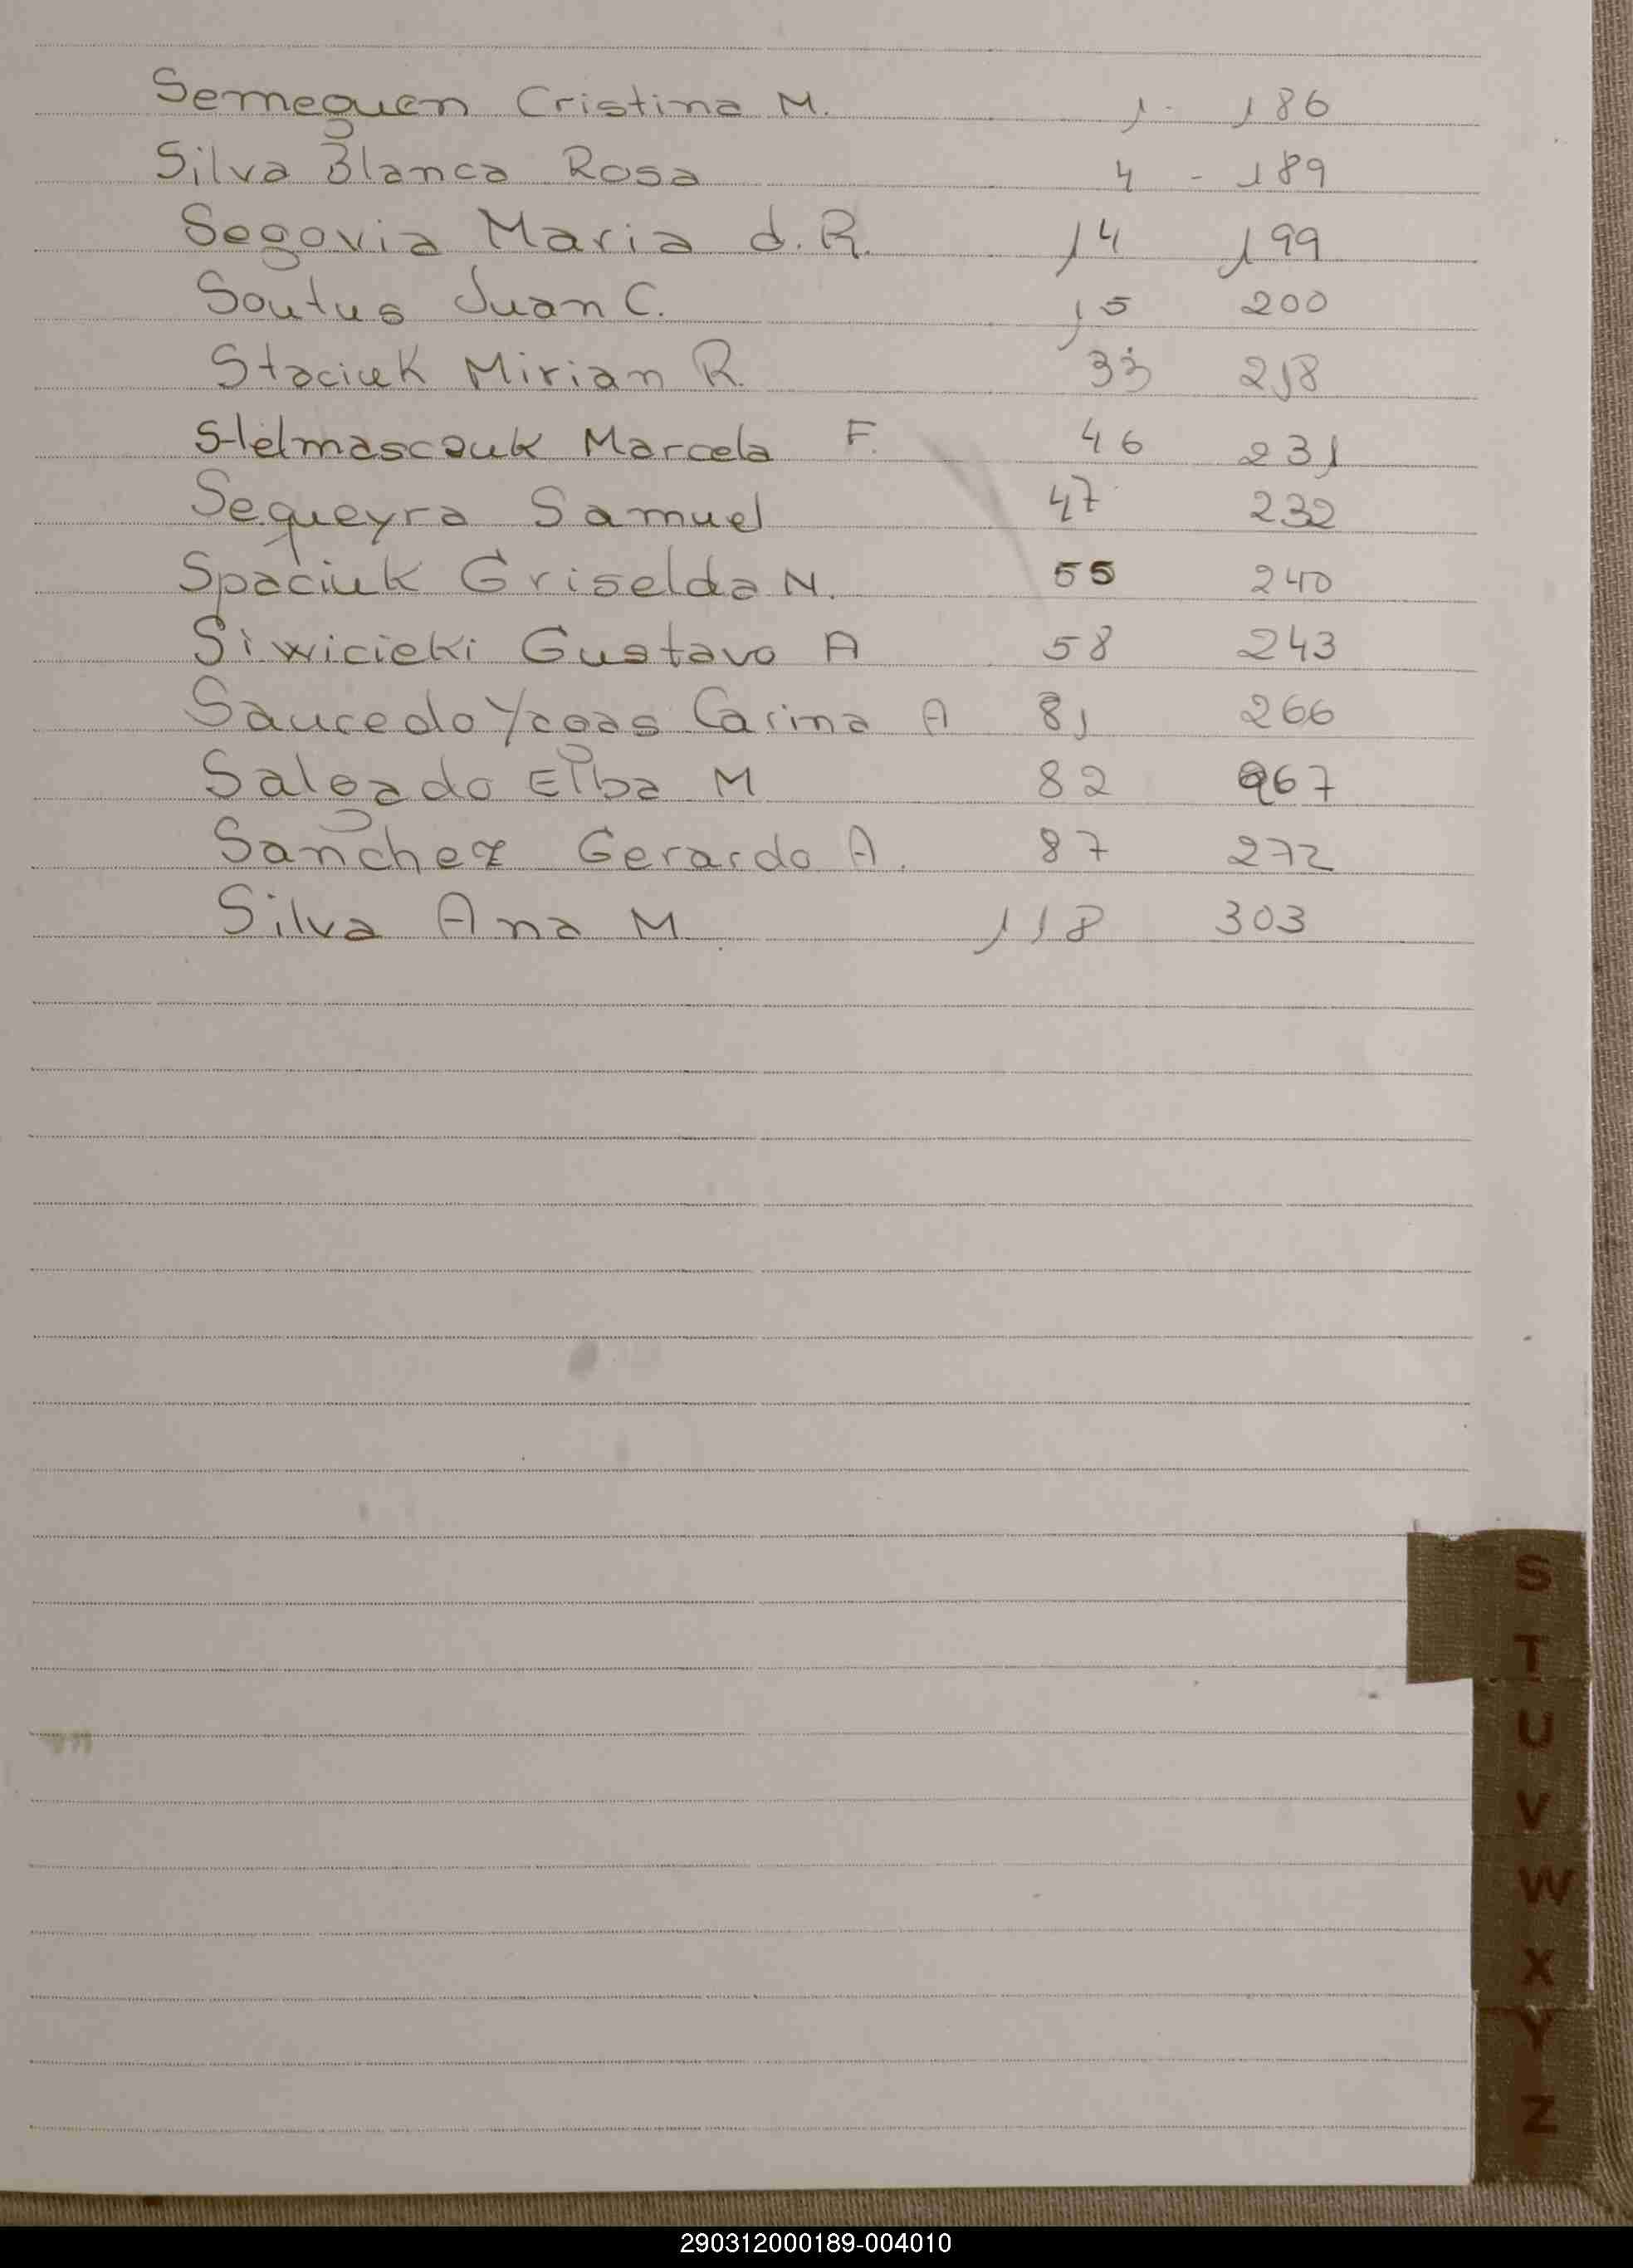 Semeguen Cristina M. 1 - 186
Silva Blanca Rosa 4 - 189
Segovia Maria d. R. 14 199
Soutus Juan C. 15 200
Staciuk Mirian R. 33 218
Stelmasczuk Marcela F. 46 231
Sequeyra Samuel 47 232
Spaciuk Griselda N. 55 240
Siwicieki Gustavo A 58 243
Saucedo Carina A 81 266
Salgado Elba M 82 267
Sanchez Gerardo A. 87 272
Silva Ana M. 118 303
S
T
U
V
W
X
Y
Z
290312000189-004010